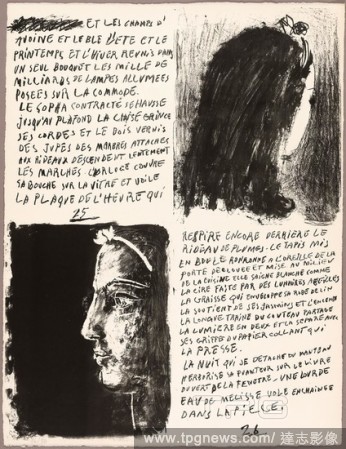 ET LES CHAMPS D'
AVOINE ET LE BLE L'ETE ET LE
PRINTEMPS ET L'HIVER REUNIS DANS
UN SEUL BOUQUET LES MILLE DE
MILLIARDS DE LAMPES ALLUMEES
POSEES SUR LA COMMODE.
LE SOPHA CONTRACTÉ SE HAUSSE
JUSQU'AU PLAFOND LA CHAISE GRINCE
SES CORDES ET LE BOIS VERNIS
DES JUPES DES MARBRES ATTACHES
AUX RIDEAUX DESCENDENT LENTEMENT
LES MARCHES L'HORLOGE COUVRE
SA BOUCHE SUR LA VITRE ET VOILE
LA PLAQUE DE L'HEURE QUI
25
RESPIRE ENCORE DERRIÈRE LE
RIDEAU DE PLUMES. LE TAPIS MIS
EN BOULE RONRONNE A L'OREILLE DE LA
PORTE DECLOUEE ET MISE AU MILIEU
DE LA CUISINE ELLE SAIGNE BLANCHE COMME
LA CIRE FAITE PAR DES LUMIERES ABEILLES
LA GRAISSE QUI ENVELOPPE SA ROBE DE LIN
LA SOUTIENT DE SES JASMINS ET L'ENCENS
LA LONGUE TRAINE DU COUTEAU PARTAGE
LA LUMIERE EN DEUX ET LA SEPARE AVEC
SES GRIFFES DU PAPIER COLLANT QUI
LA PRESSE.
LA NUIT QUI SE DETACHE DU MANTEAU
HERBORISE LA PUANTEUR SUR LE LIVRE
OUVERT DE LA FENETRE - UNE LOURDE
EAU DE MELISSE VOLE ENCHAINEE
DANS LA PIECE
26
www.tpgnews.com/ 達志影像